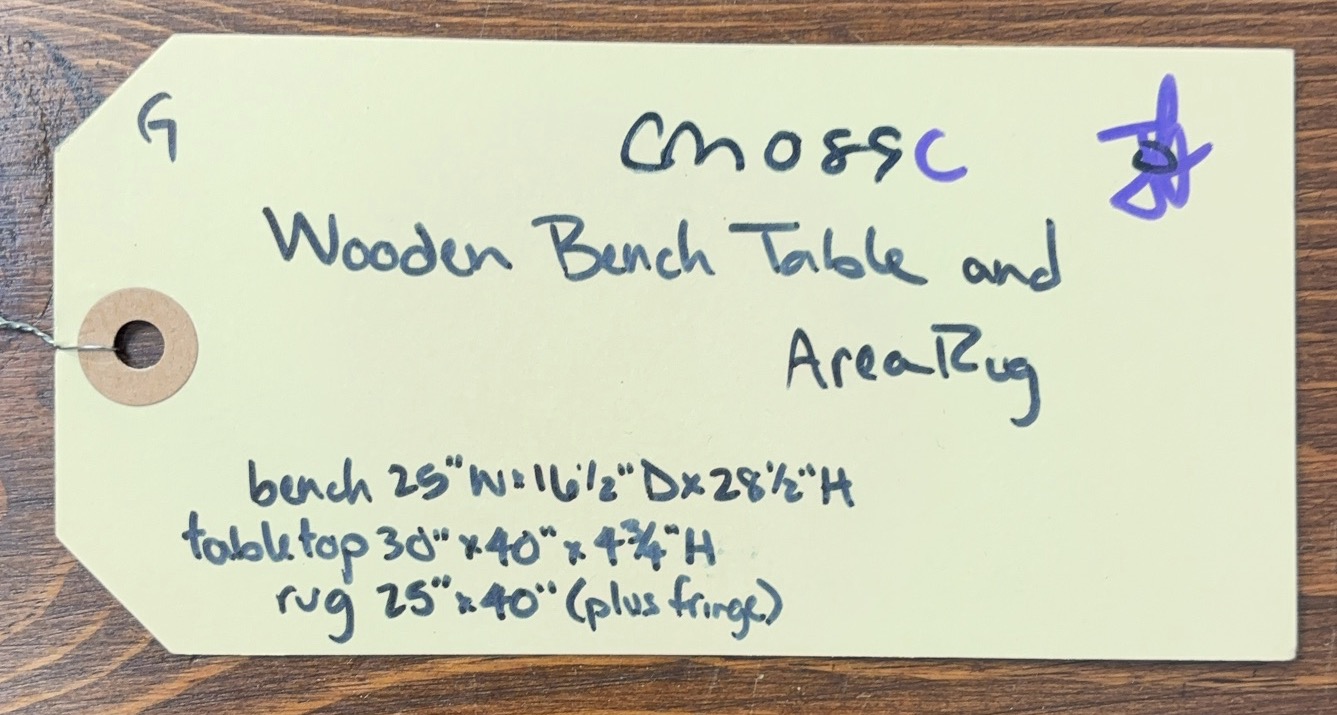 G
Wooden Bench Table and
Area Rug
bench 25" W x 16 1/2" D x 28 1/2" H
tabletop 30" x 40" x 4 3/4" H
rug 25" x 40" (plus fringe)